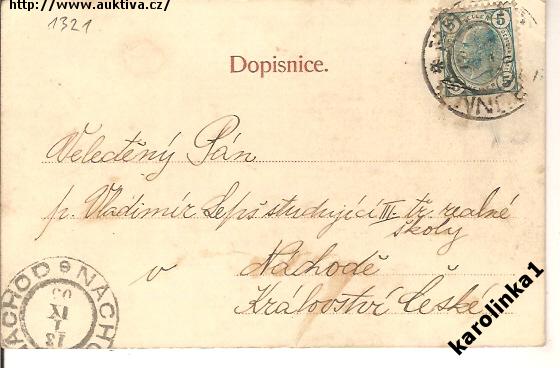 http://www.auktiva.cz/
1321
5 5
Dopisnice.
Veleděný Pán
p. Vladimír Lepš studující III. tř. realné
školy
v Náchodě
Království České
NACHOD NACHO
13
IX
03
karolinka1